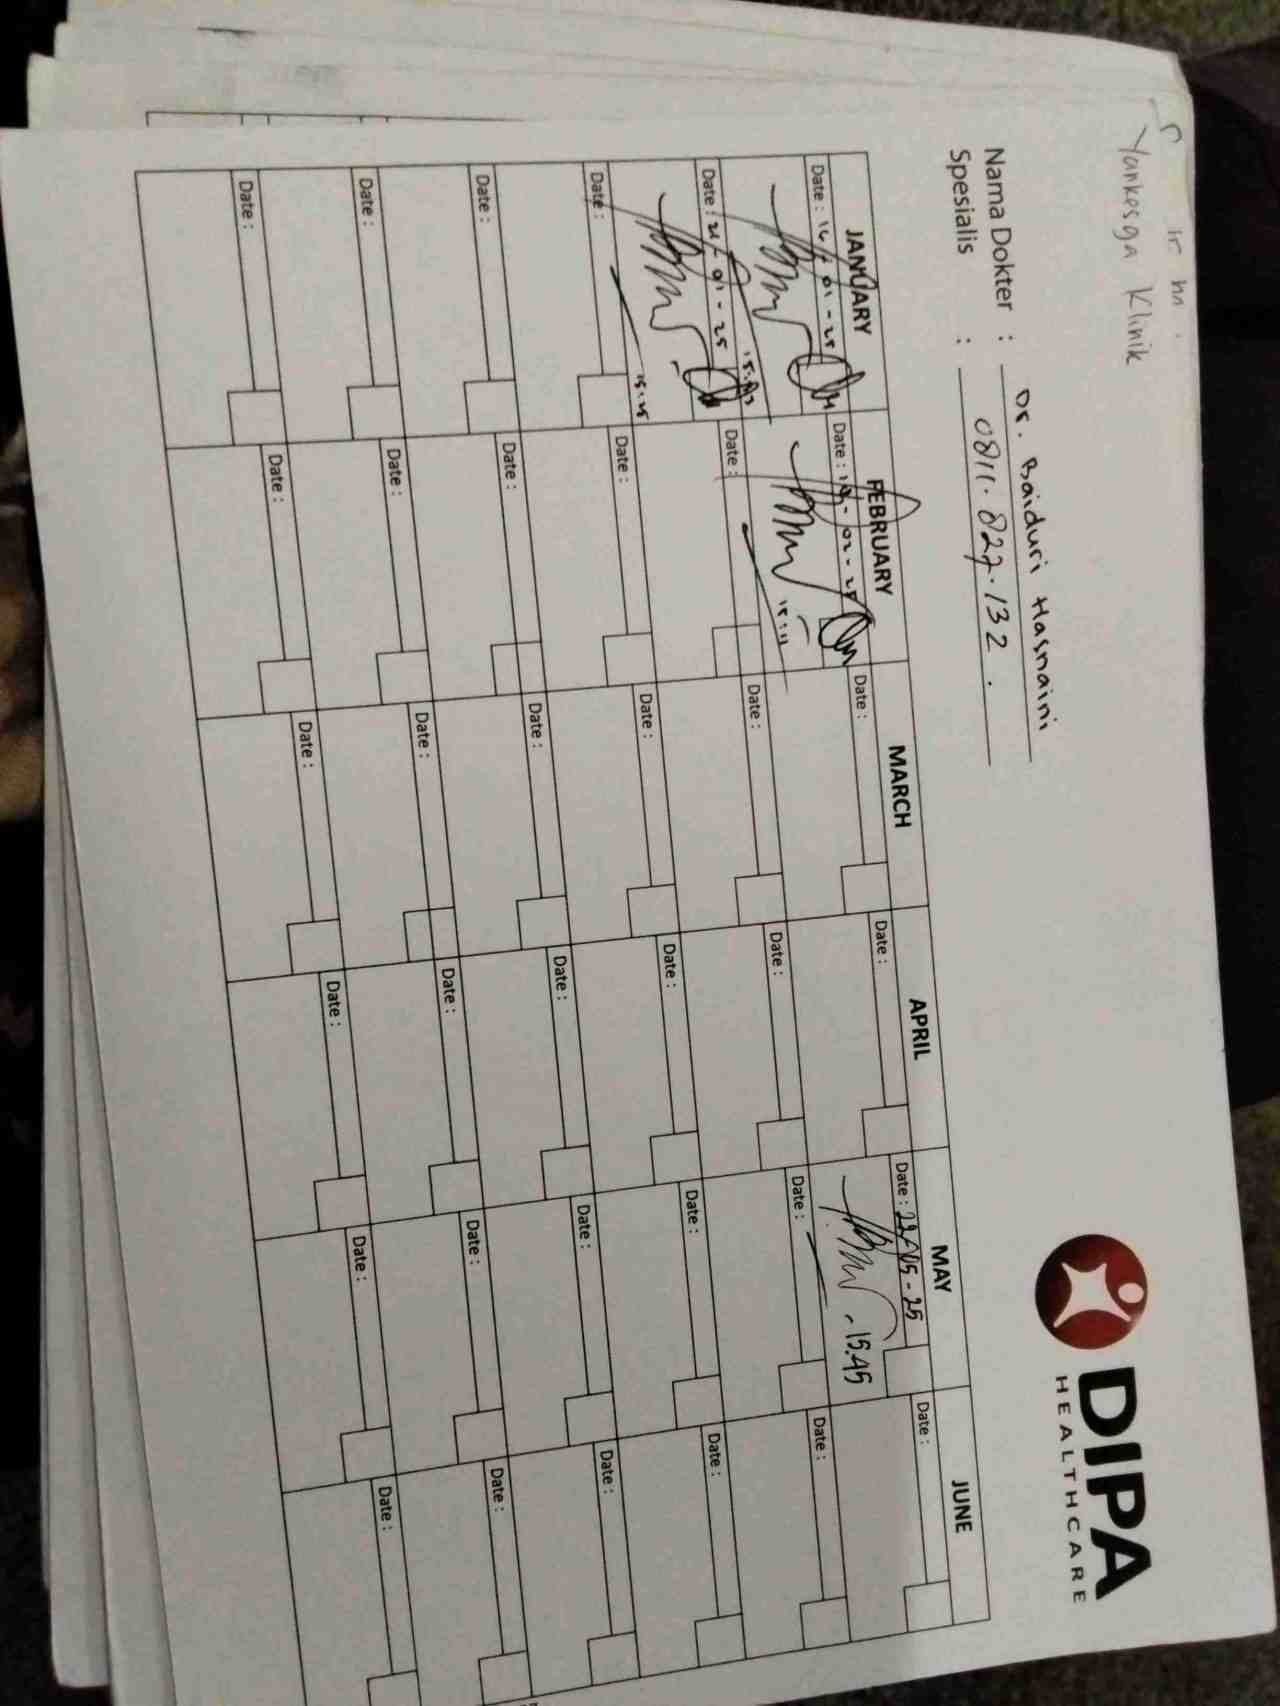 Yankesga Klinik
DIPA
HEALTHCARE
Nama Dokter : Dr. Baiduri Hasnaini
Spesialis : 0811.827.132.
JANUARY FEBRUARY MARCH APRIL MAY JUNE
Date : 14-01-25 Date : Date : Date : Date : 22-05-25 Date :
15:11 - 15.45
Date : 21-01-25 Date : Date : Date : Date : Date :
15:25
Date : Date : Date : Date : Date : Date :
Date : Date : Date : Date : Date : Date :
Date : Date : Date : Date : Date : Date :
Date : Date : Date : Date : Date : Date :